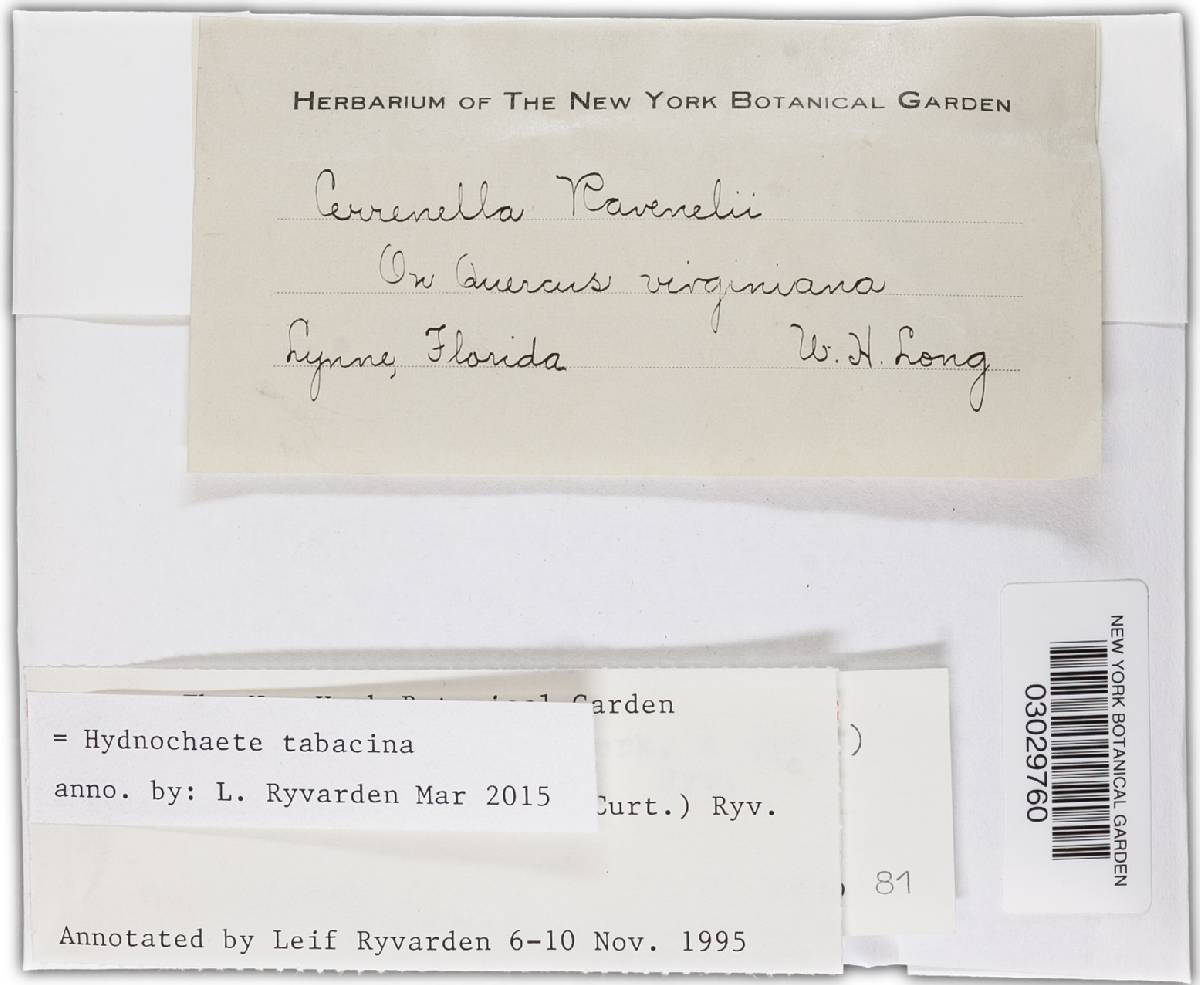 HERBARIUM OF THE NEW YORK BOTANICAL GARDEN
Cerrenella Ravenelii
On Quercus virginiana
Lynne, Florida W. H. Long
Garden
= Hydnochaete tabacina
anno. by: L. Ryvarden Mar 2015
Curt.) Ryv.
Annotated by Leif Ryvarden 6-10 Nov. 1995
)
81
NEW YORK BOTANICAL GARDEN
03029760